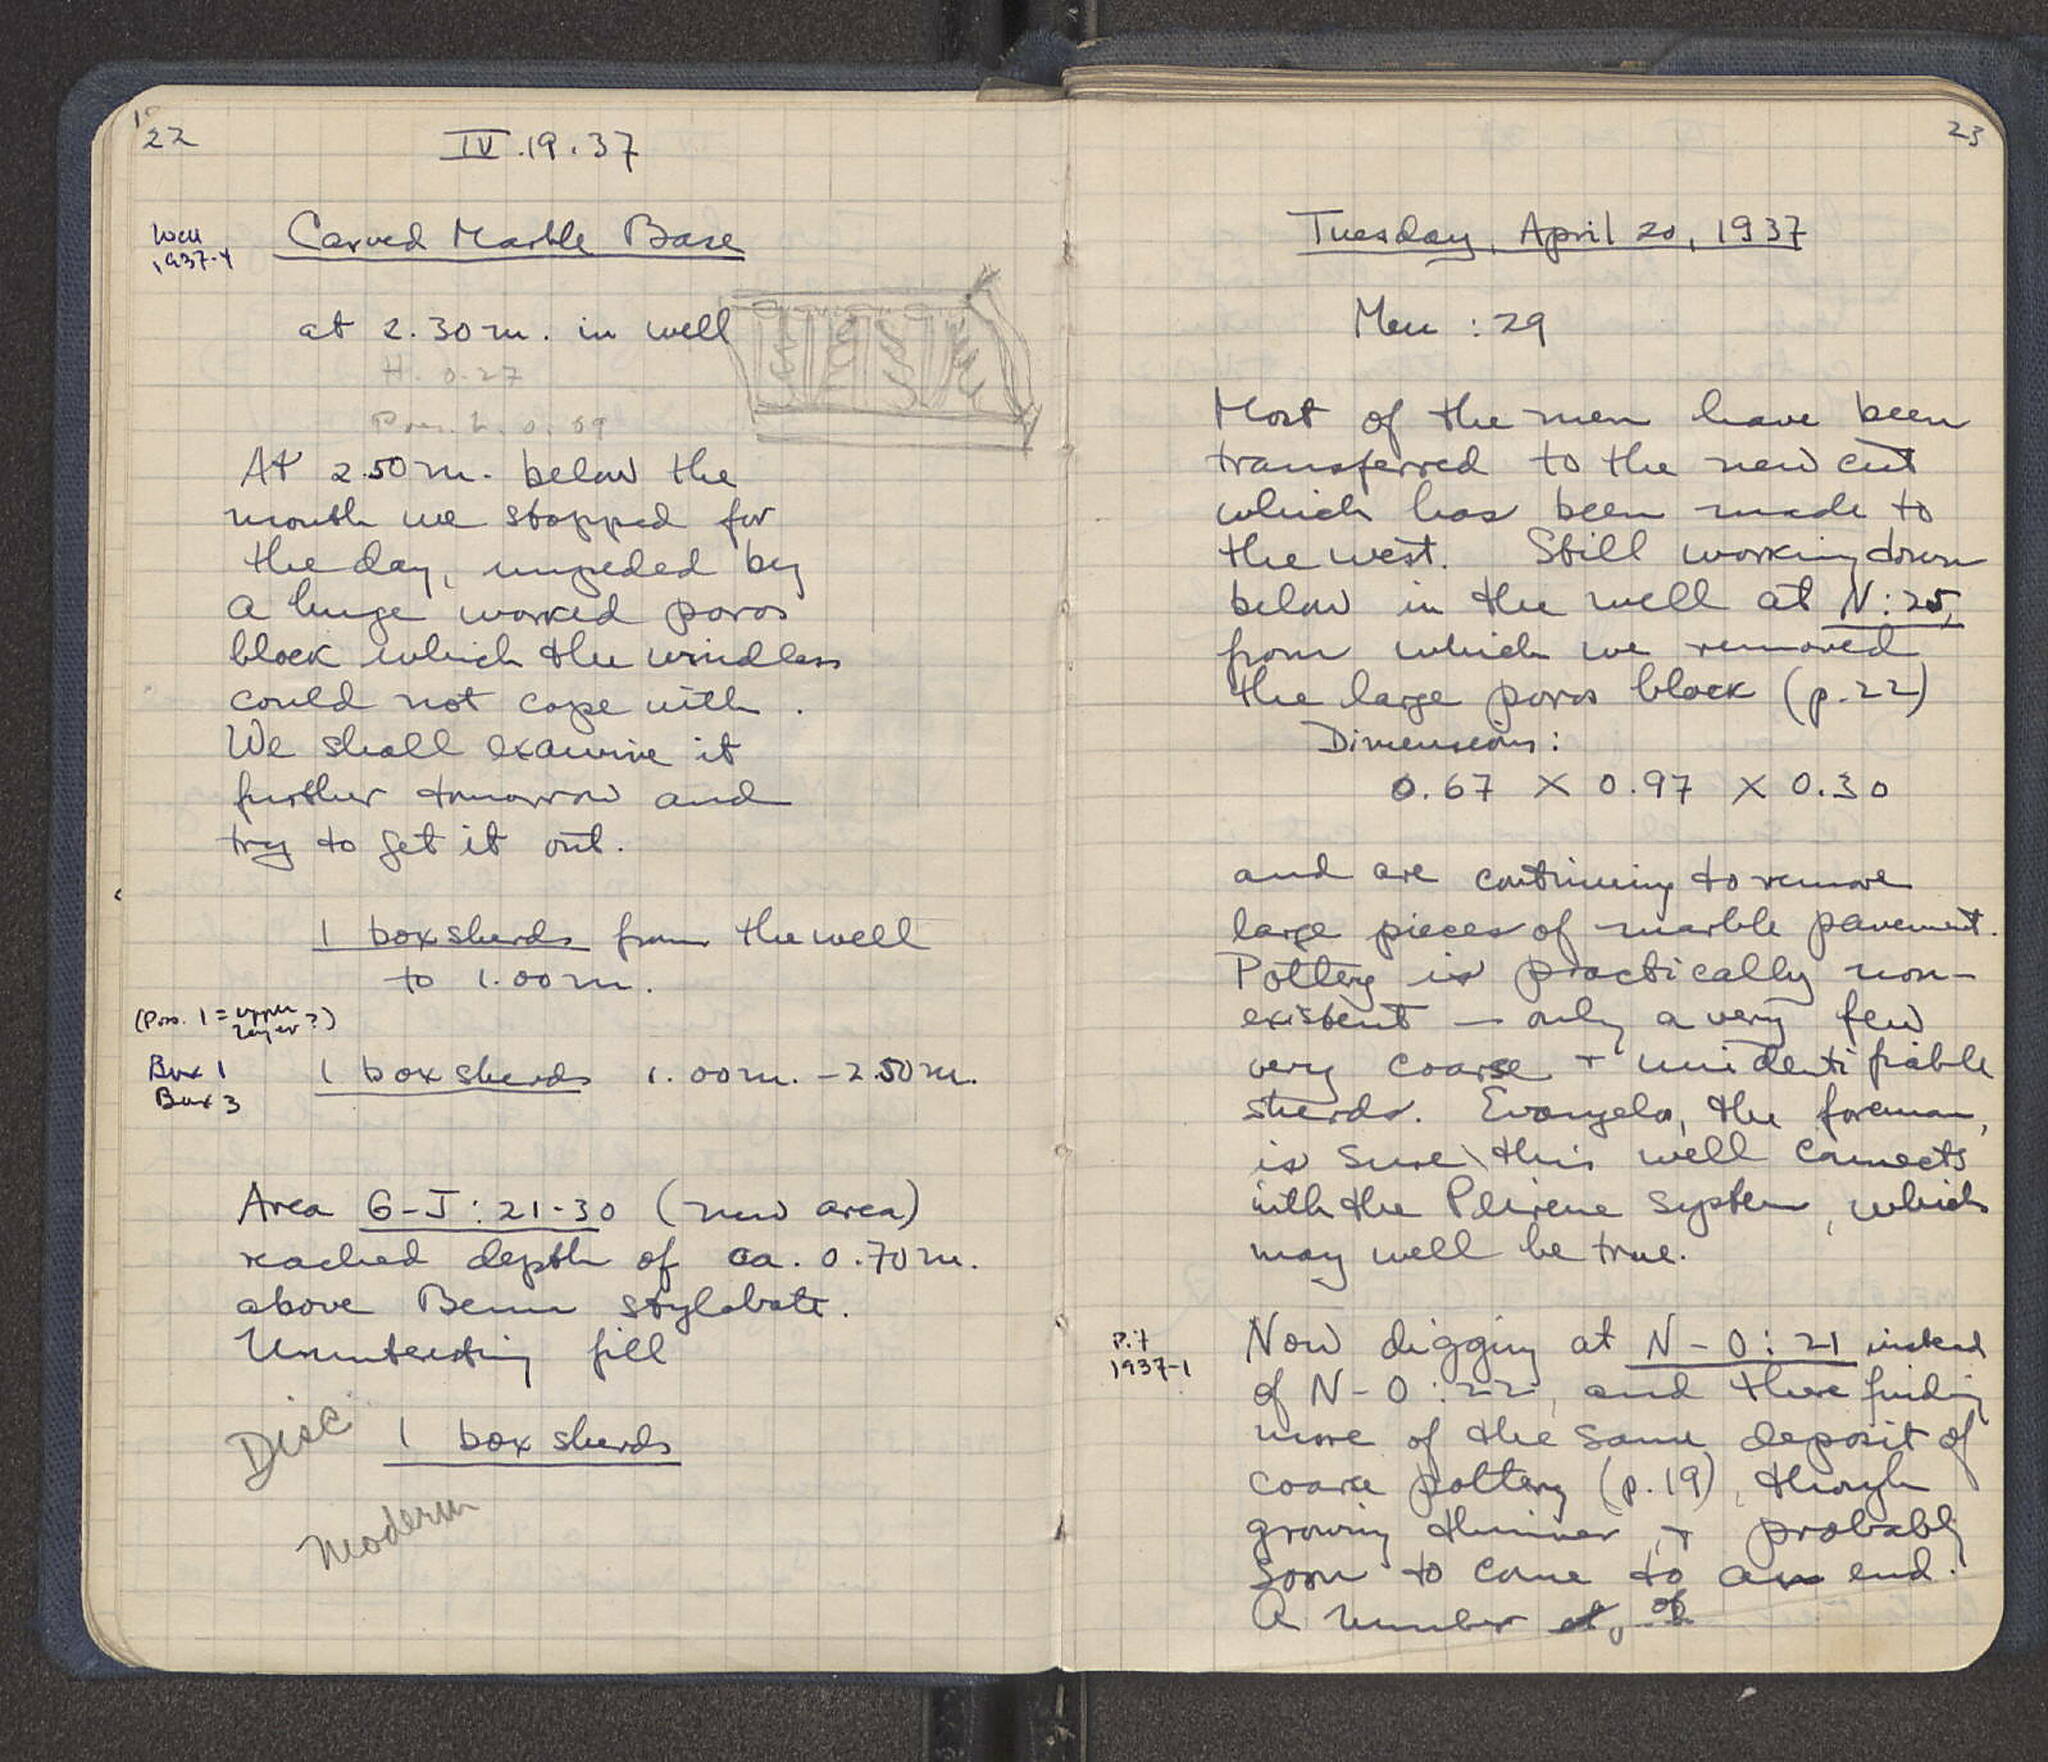 22
IV.19.37
Well
1937-4
Carved Marble Base
at 2.30 m. in well
H. 0.27
Pres. L. 0.59
At 2.50 m. below the
mouth we stopped for
the day, impeded by
a huge worked poros
block which the windlass
could not cope with.
We shall examine it
further tomorrow and
try to get it out.
1 box sherds from the well
to 1.00 m.
(Poss. 1 = upper
layer?)
Box 1
Box 3
1 box sherds 1.00 m. - 2.50 m.
Area G-J:21-30 (new area)
reached depth of ca. 0.70 m.
above Bema stylobate.
Uninteresting fill
Disc
1 box sherds
modern
23
Tuesday, April 20, 1937
Men : 29
Most of the men have been
transferred to the new cut
which has been made to
the west. Still working down
below in the well at N:25,
from which we removed
the large poros block (p. 22)
Dimensions:
0.67 X 0.97 X 0.30
and are continuing to remove
large pieces of marble pavement.
Pottery is practically non-
existent — only a very few
very coarse + unidentifiable
sherds. Evangelo, the foreman,
is sure this well connects
with the Peirene system, which
may well be true.
Pit
1937-1
Now digging at N-O:21 instead
of N-O:22, and there finding
more of the same deposit of
coarse pottery (p. 19), though
growing thinner, + probably
soon to come to an end.
A number of